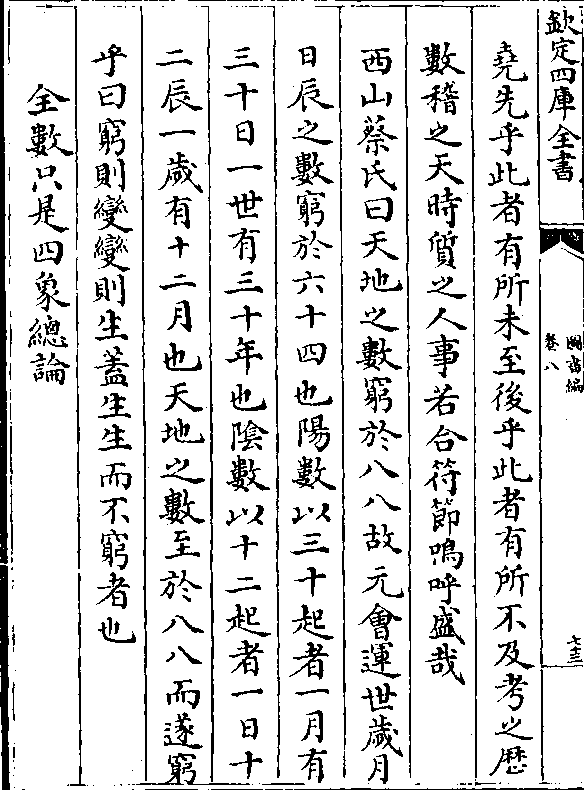 欽定四庫全書
圖書編
卷八
七十三
堯先乎此者有所未至後乎此者有所不及考之歴
數稽之天時質之人事若合符節嗚呼盛哉
西山蔡氏曰天地之數窮於八八故元會運世歲月
日辰之數窮於六十四也陽數以三十起者一月有
三十日一世有三十年也陰數以十二起者一日十
二辰一歲有十二月也天地之數至於八八而遂窮
乎曰窮則變變則生蓋生生而不窮者也
全數只是四象總論